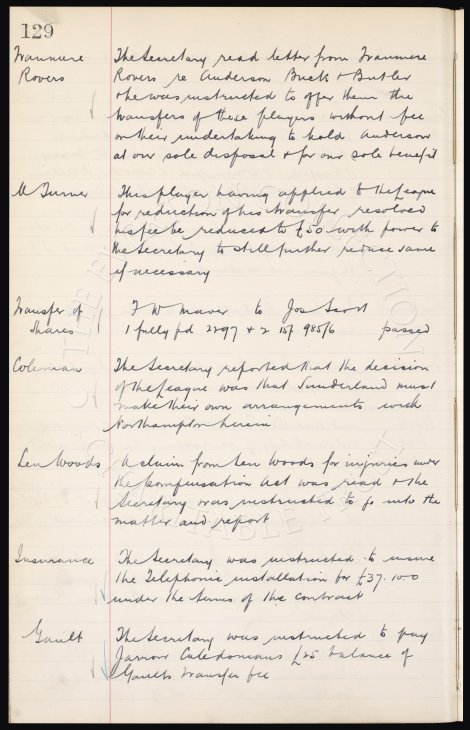 129
Tranmere The Secretary read letter from Tranmere
Rovers Rovers re Anderson Buck & Butler
& he was instructed to offer them the
transfers of these players without fee
on their undertaking to hold Anderson
at our sole disposal & for our sole benefit
M Turner This player having applied to the League
for reduction of his transfer, resolved
his fee be reduced to £50 with power to
the Secretary to still further reduce same
if necessary
Transfer of F W Mavor to Jos Scott
Shares 1 fully pd 2297 & 2 15/ 985/6 passed
Coleman The Secretary reported that the decision
of the League was that Sunderland must
make their own arrangements with
Northampton herein
Len Woods A claim from Len Woods for injuries under
the Compensation Act was read & the
Secretary was instructed to go into the
matter and report
Insurance The Secretary was instructed to insure
the Telephonic installation for £37.10.0
under the terms of the contract
Gault The Secretary was instructed to pay
Jarrow Caledonians £25 balance of
Gaults transfer fee